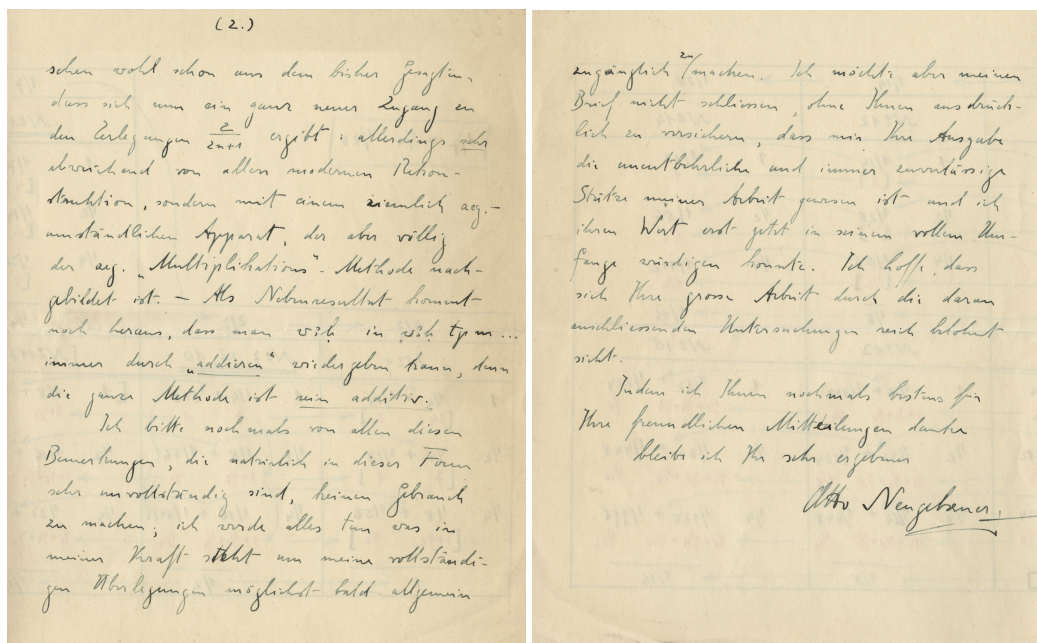 (2.)
sehen wohl schon aus dem bisher Gesagten,
dass sich nun ein ganz neuer Zugang zu
den Zerlegungen 2/2n+1 ergibt: allerdings sehr
abweichend von allen modernen Rekon-
struktion, sondern mit einem ziemlich aeg.-
umständlichen Apparat, der aber völlig
der aeg. „Multiplikations"-Methode nach-
gebildet ist. — Als Nebenresultat kommt
noch heraus, dass man w3ḥ in w3ḥ tp m...
immer durch „addieren" wiedergeben kann, denn
die ganze Methode ist rein additiv.
Ich bitte nochmals von allen diesen
Bemerkungen, die natürlich in dieser Form
sehr unvollständig sind, keinen Gebrauch
zu machen; ich werde alles tun was in
meiner Kraft steht um meine vollständi-
gen Überlegungen möglichst bald allgemein
zugänglich zu machen. Ich möchte aber meinen
Brief nicht schliessen, ohne Ihnen ausdrück-
lich zu versichern, dass mir Ihre Ausgabe
die unentbehrliche und immer zuverlässige
Stütze meiner Arbeit gewesen ist und ich
ihren Wert erst jetzt in seinem vollem Um-
fange würdigen konnte. Ich hoffe, dass
sich Ihre grosse Arbeit durch die daran
anschliessenden Untersuchungen reich belohnt
sieht.
Indem ich Ihnen nochmals bestens für
Ihre freundlichen Mitteilungen danke
bleibe ich Ihr sehr ergebener
Otto Neugebauer.